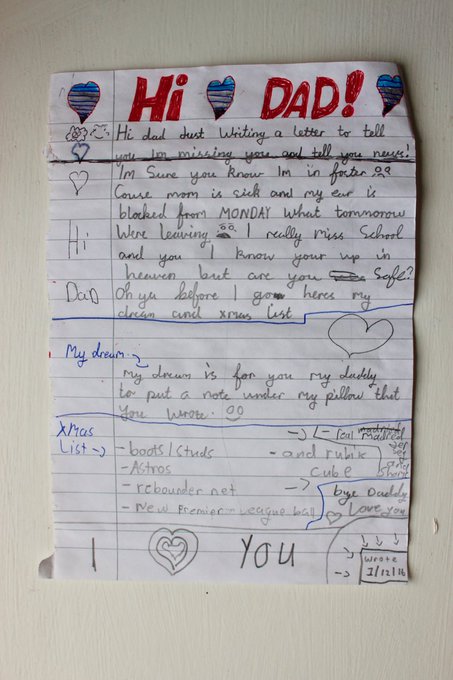 Hi DAD!
Hi dad Just Writing a letter to tell
you Im missing you and tell you news!
I'm Sure you know Im in foster
Couse mom is sick and my ear is
blocked from MONDAY What tommorow
Were leaving I really miss School
and you I know your up in
heaven but are you Safe?
Oh ya before I go heres my
dream and xmas list
Hi
DaD
My dream
my dream is for you my daddy
to put a note under my pillow that
you wrote.
XMas
List
- boots/studs
- Astros
- rebounder net
- New Premier League ball
- real madrid
- and rubix
cube
bye Daddy
Love you
I YOU
Wrote
1/12/16